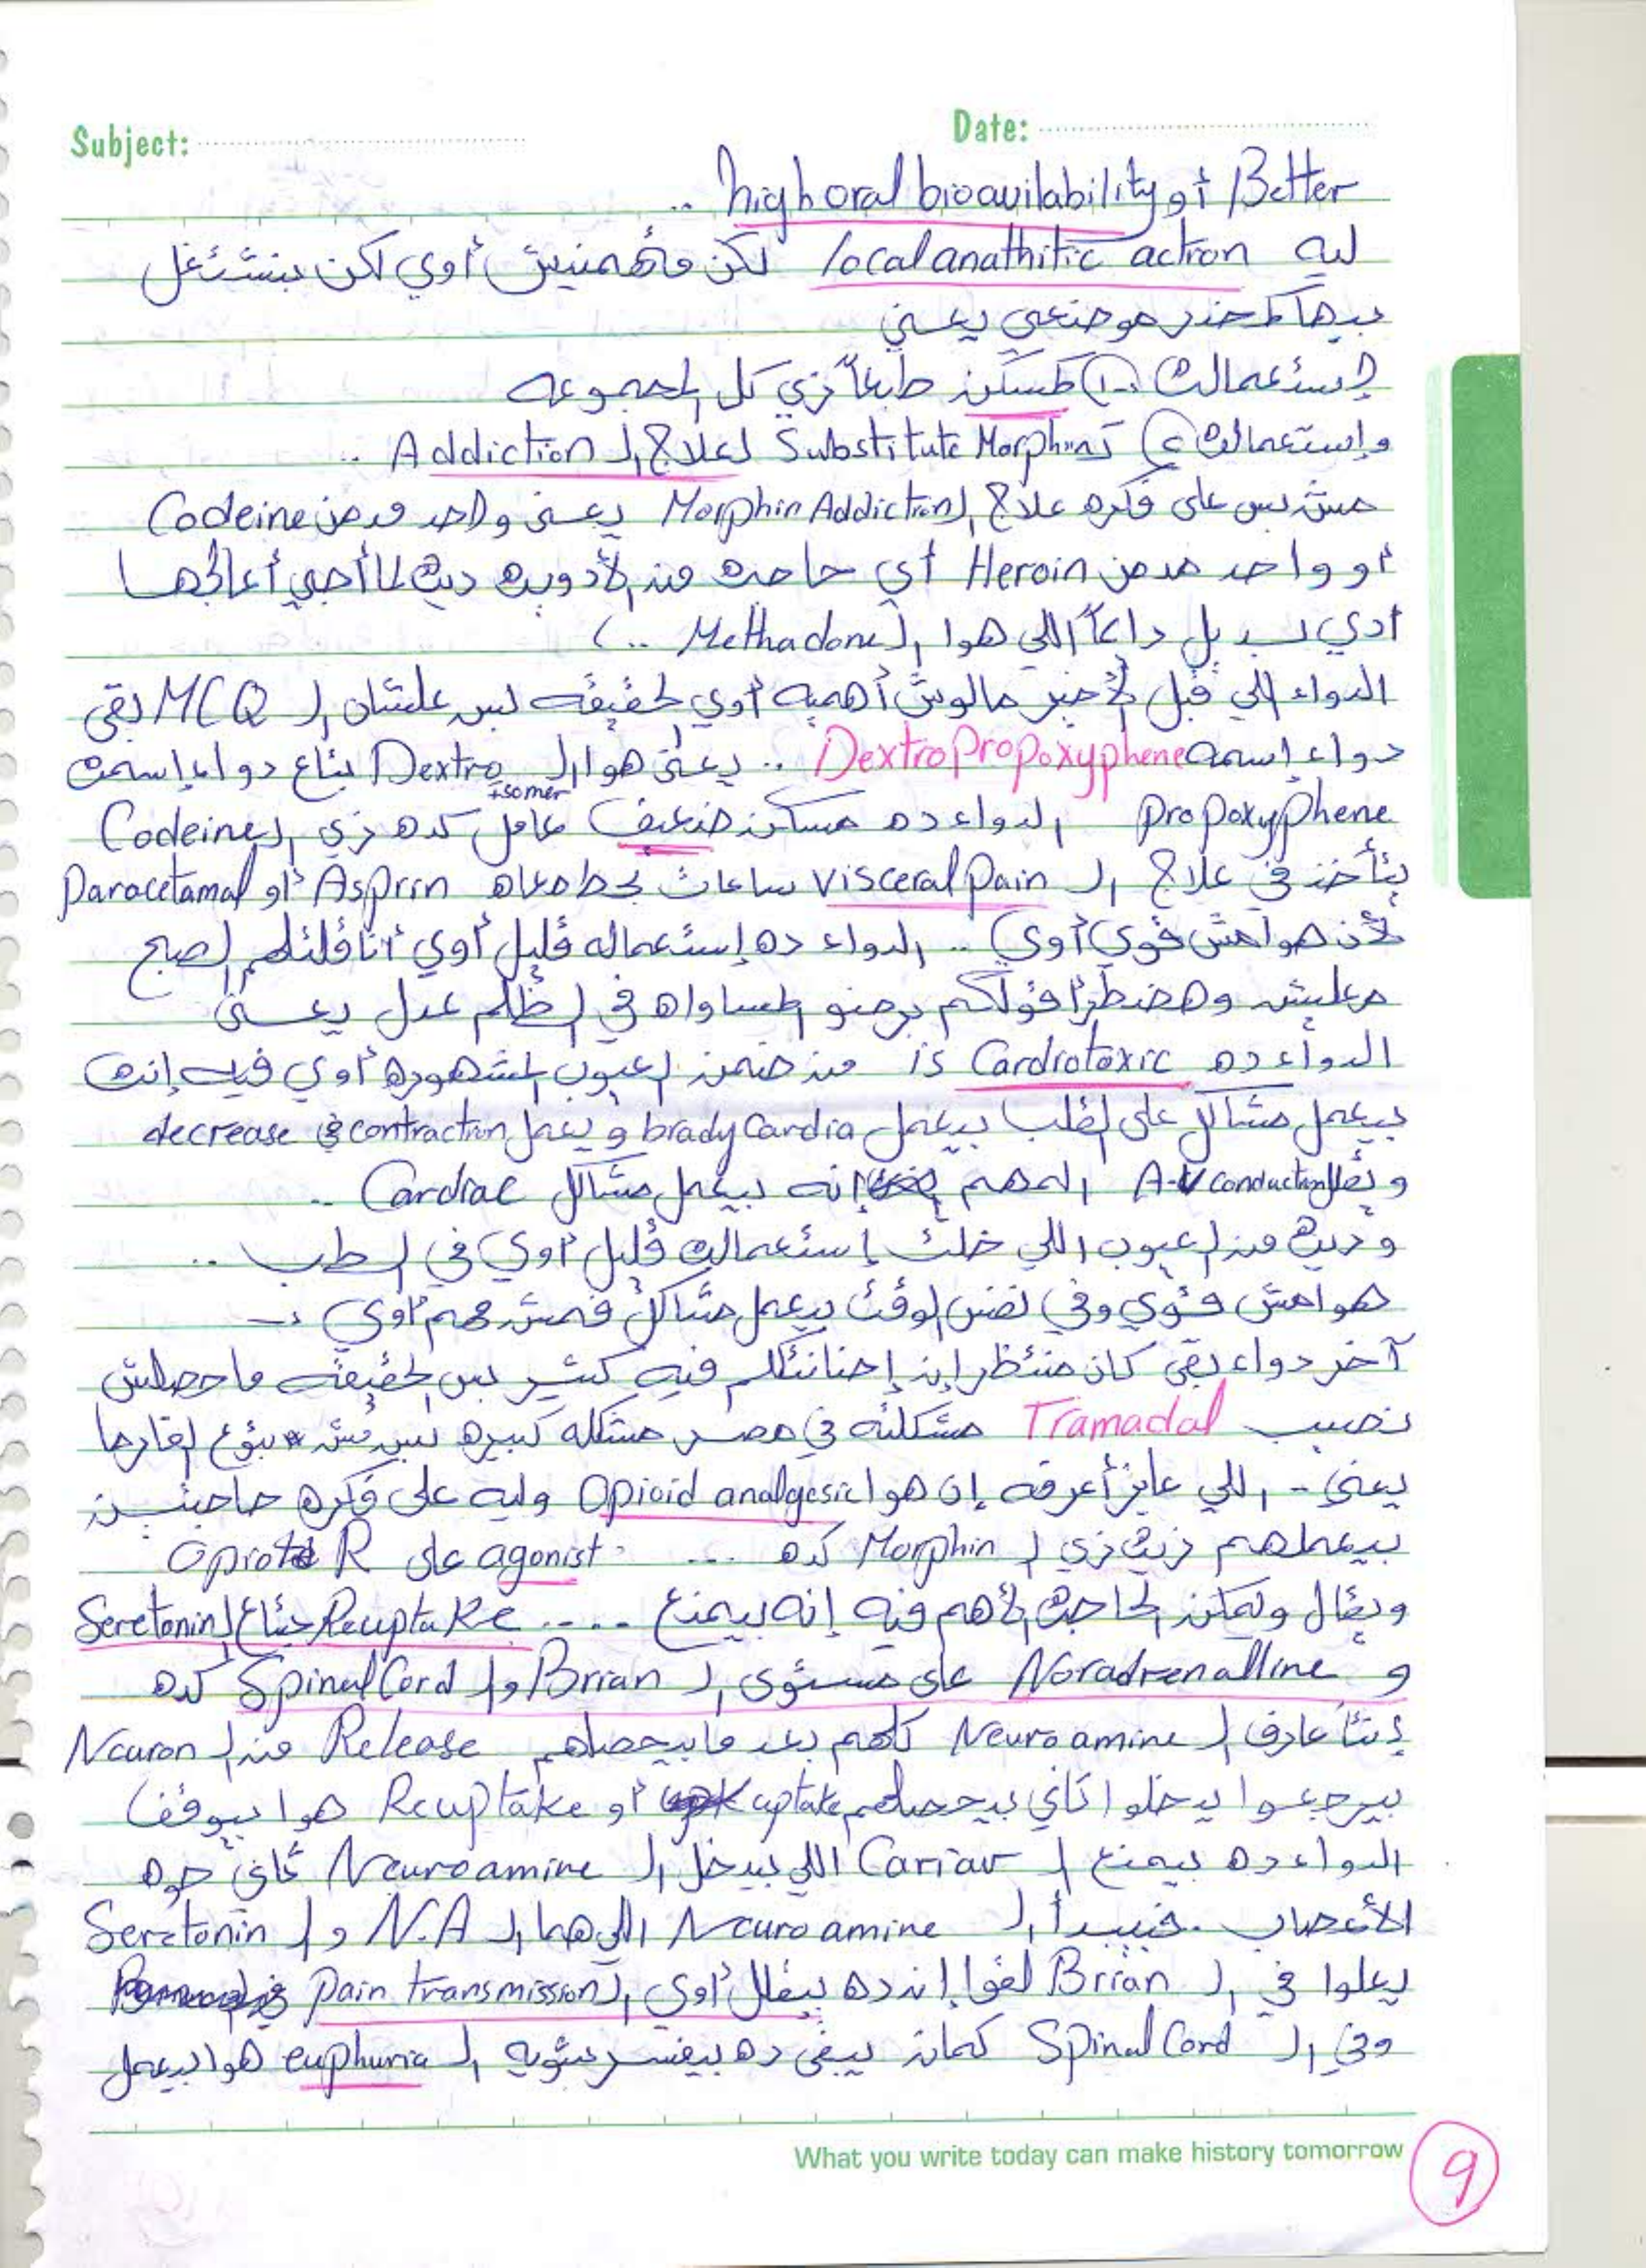 Subject:
Date:
Better أو high oral bioavilability ..
ليه local anathitic action لكن مأهمنيش أوي لكن بنشتغل
بيها كمخدر موضعي يعني
إستعمالته ١- كمسكن طبعاً زي كل المجموعه
وإستعمالته ٢ كـ Substitute Morphin لعلاج الـ Addiction ..
مش بس على فكره علاج الـ Morphin Addiction يعني واحد مدمن Codeine
أو واحد مدمن Heroin أي حاجه من الأدويه ديه لما أجي أعالجها
أدي بديل دايماً اللي هوا الـ Methadone .. )
الدواء اللي قبل الأخير مالوش أهميه أوي لحقيقه بس علشان الـ MCQ بقى
دواء إسمه DextroPropoxyphene .. يعني هوا الـ Dextro isomer بتاع دواء إسمه
Propoxyphene الدواء ده مسكن ضعيف عامل كده زي الـ Codeine
بتأخذ في علاج الـ visceral Pain ساعات بحط معاه Asprin أو Paracetamal
لأن هوا مش قوي أوي .. الدواء ده إستعماله قليل أوي أنا قلتلهم الصبح
معليش ومضطر أقولكم برضو المساواه في الظلم عدل يعني
الدواء ده is Cardiotoxic من ضمن العيوب المشهوره أوي فيه إنه
بيعمل مشاكل على القلب بيعمل bradyCardia ويعمل decrease في contraction
ويقلل A-V conduction المهم إنه بيعمل مشاكل Cardiac ..
وديه من العيوب اللي خلت إستعماله قليل أوي في الطب ..
هوا مش قوي وفي نفس الوقت بيعمل مشاكل فمش مهم أوي :-
آخر دواء بقى كان منتظر إن إحنا نتكلم فيه كتير بس الحقيقه ماحصلش
نصيب Tramadal مشكلته في مصر مشكله كبيره بس مش بتوع القارما
يعني - اللي عايز أعرفه إن هوا Opioid analgesic وليه على فكره حاجتين
بيعملهم زيه زي الـ Morphin كده ... agonist على Opiote R
ويقال ولكن الحاجه الأهم فيه إنه بيمنع .... Reuptake بتاع الـ Seretonin
و Noradrenalline على مستوى الـ Brian والـ Spinal Cord كده
إنتا عارف الـ Neuroamine كلهم بعد مابيحصلهم Release من الـ Neuron
بيرجعوا يدخلوا تاني بيحصلهم uptake أو Reuptake هوا بيوقف
الدواء ده بيمنع الـ Cariar اللي بيدخل الـ Neuroamine تاني جوه
الأعصاب فبيبدأ الـ Neuroamine اللي هما الـ N.A والـ Seretonin
يعلوا في الـ Brian لقوا إن ده بيقلل أوي الـ Pain transmission
وفي الـ Spinal Cord كمان يبقى ده بيفسر شويه الـ euphuria هوا بيعمل
What you write today can make history tomorrow
9